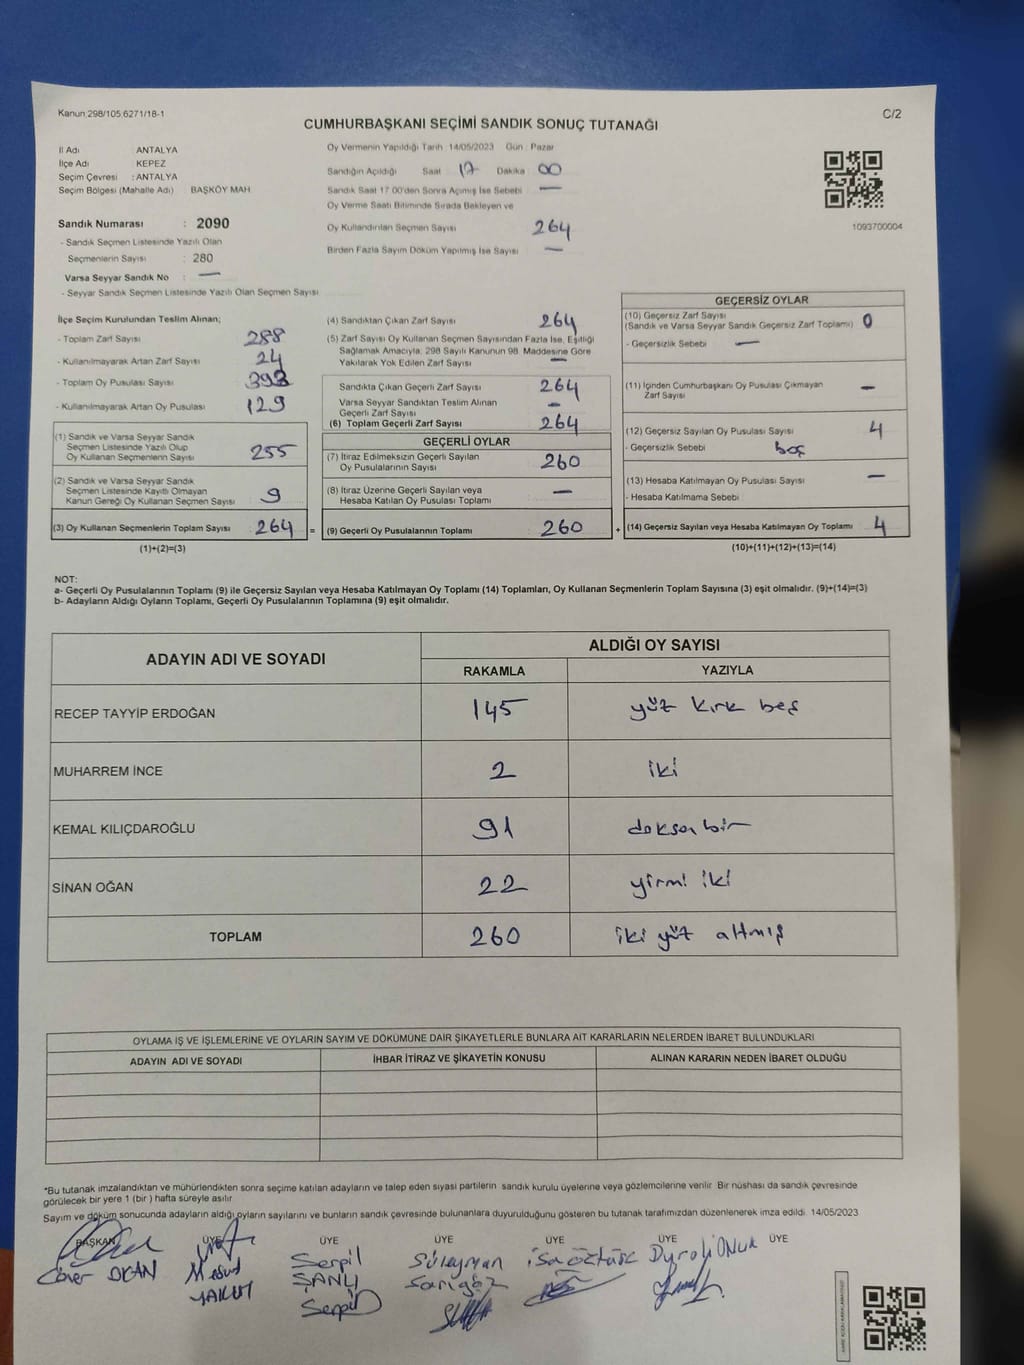 Kanun:298/105.6271/18-1
C/2
CUMHURBAŞKANI SEÇİMİ SANDIK SONUÇ TUTANAĞI
İl Adı ANTALYA
İlçe Adı KEPEZ
Seçim Çevresi : ANTALYA
Seçim Bölgesi (Mahalle Adı) BAŞKÖY MAH
Sandık Numarası : 2090
- Sandık Seçmen Listesinde Yazılı Olan
Seçmenlerin Sayısı : 280
Varsa Seyyar Sandık No : —
- Seyyar Sandık Seçmen Listesinde Yazılı Olan Seçmen Sayısı
Oy Vermenin Yapıldığı Tarih 14/05/2023 Gün : Pazar
Sandığın Açıldığı Saat 17 Dakika 00
Sandık Saat 17:00'den Sonra Açılmış İse Sebebi —
Oy Verme Saati Bitiminde Sırada Bekleyen ve
Oy Kullandırılan Seçmen Sayısı 264
Birden Fazla Sayım Döküm Yapılmış İse Sayısı —
1093700004
İlçe Seçim Kurulundan Teslim Alınan;
- Toplam Zarf Sayısı 288
- Kullanılmayarak Artan Zarf Sayısı 24
- Toplam Oy Pusulası Sayısı 393
- Kullanılmayarak Artan Oy Pusulası 129
(1) Sandık ve Varsa Seyyar Sandık
Seçmen Listesinde Yazılı Olup
Oy Kullanan Seçmenlerin Sayısı 255
(2) Sandık ve Varsa Seyyar Sandık
Seçmen Listesinde Kayıtlı Olmayan
Kanun Gereği Oy Kullanan Seçmen Sayısı 9
(3) Oy Kullanan Seçmenlerin Toplam Sayısı 264 =
(1)+(2)=(3)
(4) Sandıktan Çıkan Zarf Sayısı 264
(5) Zarf Sayısı Oy Kullanan Seçmen Sayısından Fazla İse, Eşitliği
Sağlamak Amacıyla; 298 Sayılı Kanunun 98. Maddesine Göre
Yakılarak Yok Edilen Zarf Sayısı —
Sandıkta Çıkan Geçerli Zarf Sayısı 264
Varsa Seyyar Sandıktan Teslim Alınan
Geçerli Zarf Sayısı —
(6) Toplam Geçerli Zarf Sayısı 264
GEÇERLİ OYLAR
(7) İtiraz Edilmeksizin Geçerli Sayılan
Oy Pusulalarının Sayısı 260
(8) İtiraz Üzerine Geçerli Sayılan veya
Hesaba Katılan Oy Pusulası Toplamı —
(9) Geçerli Oy Pusulalarının Toplamı 260 +
GEÇERSİZ OYLAR
(10) Geçersiz Zarf Sayısı
(Sandık ve Varsa Seyyar Sandık Geçersiz Zarf Toplamı) 0
- Geçersizlik Sebebi —
(11) İçinden Cumhurbaşkanı Oy Pusulası Çıkmayan
Zarf Sayısı —
(12) Geçersiz Sayılan Oy Pusulası Sayısı 4
- Geçersizlik Sebebi boş
(13) Hesaba Katılmayan Oy Pusulası Sayısı —
- Hesaba Katılmama Sebebi
(14) Geçersiz Sayılan veya Hesaba Katılmayan Oy Toplamı 4
(10)+(11)+(12)+(13)=(14)
NOT:
a- Geçerli Oy Pusulalarının Toplamı (9) ile Geçersiz Sayılan veya Hesaba Katılmayan Oy Toplamı (14) Toplamları, Oy Kullanan Seçmenlerin Toplam Sayısına (3) eşit olmalıdır. (9)+(14)=(3)
b- Adayların Aldığı Oyların Toplamı, Geçerli Oy Pusulalarının Toplamına (9) eşit olmalıdır.
ADAYIN ADI VE SOYADI ALDIĞI OY SAYISI
RAKAMLA YAZIYLA
RECEP TAYYİP ERDOĞAN 145 yüz kırk beş
MUHARREM İNCE 2 iki
KEMAL KILIÇDAROĞLU 91 doksan bir
SİNAN OĞAN 22 yirmi iki
TOPLAM 260 iki yüz altmış
OYLAMA İŞ VE İŞLEMLERİNE VE OYLARIN SAYIM VE DÖKÜMÜNE DAİR ŞİKAYETLERLE BUNLARA AİT KARARLARIN NELERDEN İBARET BULUNDUKLARI
ADAYIN ADI VE SOYADI İHBAR İTİRAZ VE ŞİKAYETİN KONUSU ALINAN KARARIN NEDEN İBARET OLDUĞU
*Bu tutanak imzalandıktan ve mühürlendikten sonra seçime katılan adayların ve talep eden siyasi partilerin sandık kurulu üyelerine veya gözlemcilerine verilir. Bir nüshası da sandık çevresinde
görülecek bir yere 1 (bir ) hafta süreyle asılır.
Sayım ve döküm sonucunda adayların aldığı oyların sayılarını ve bunların sandık çevresinde bulunanlara duyurulduğunu gösteren bu tutanak tarafımızdan düzenlenerek imza edildi. 14/05/2023
BAŞKAN ÜYE ÜYE ÜYE ÜYE ÜYE ÜYE
Serpil Süleyman isa öztürk
Mesud ŞANLI Sarıgöz
YAKUT Serpil